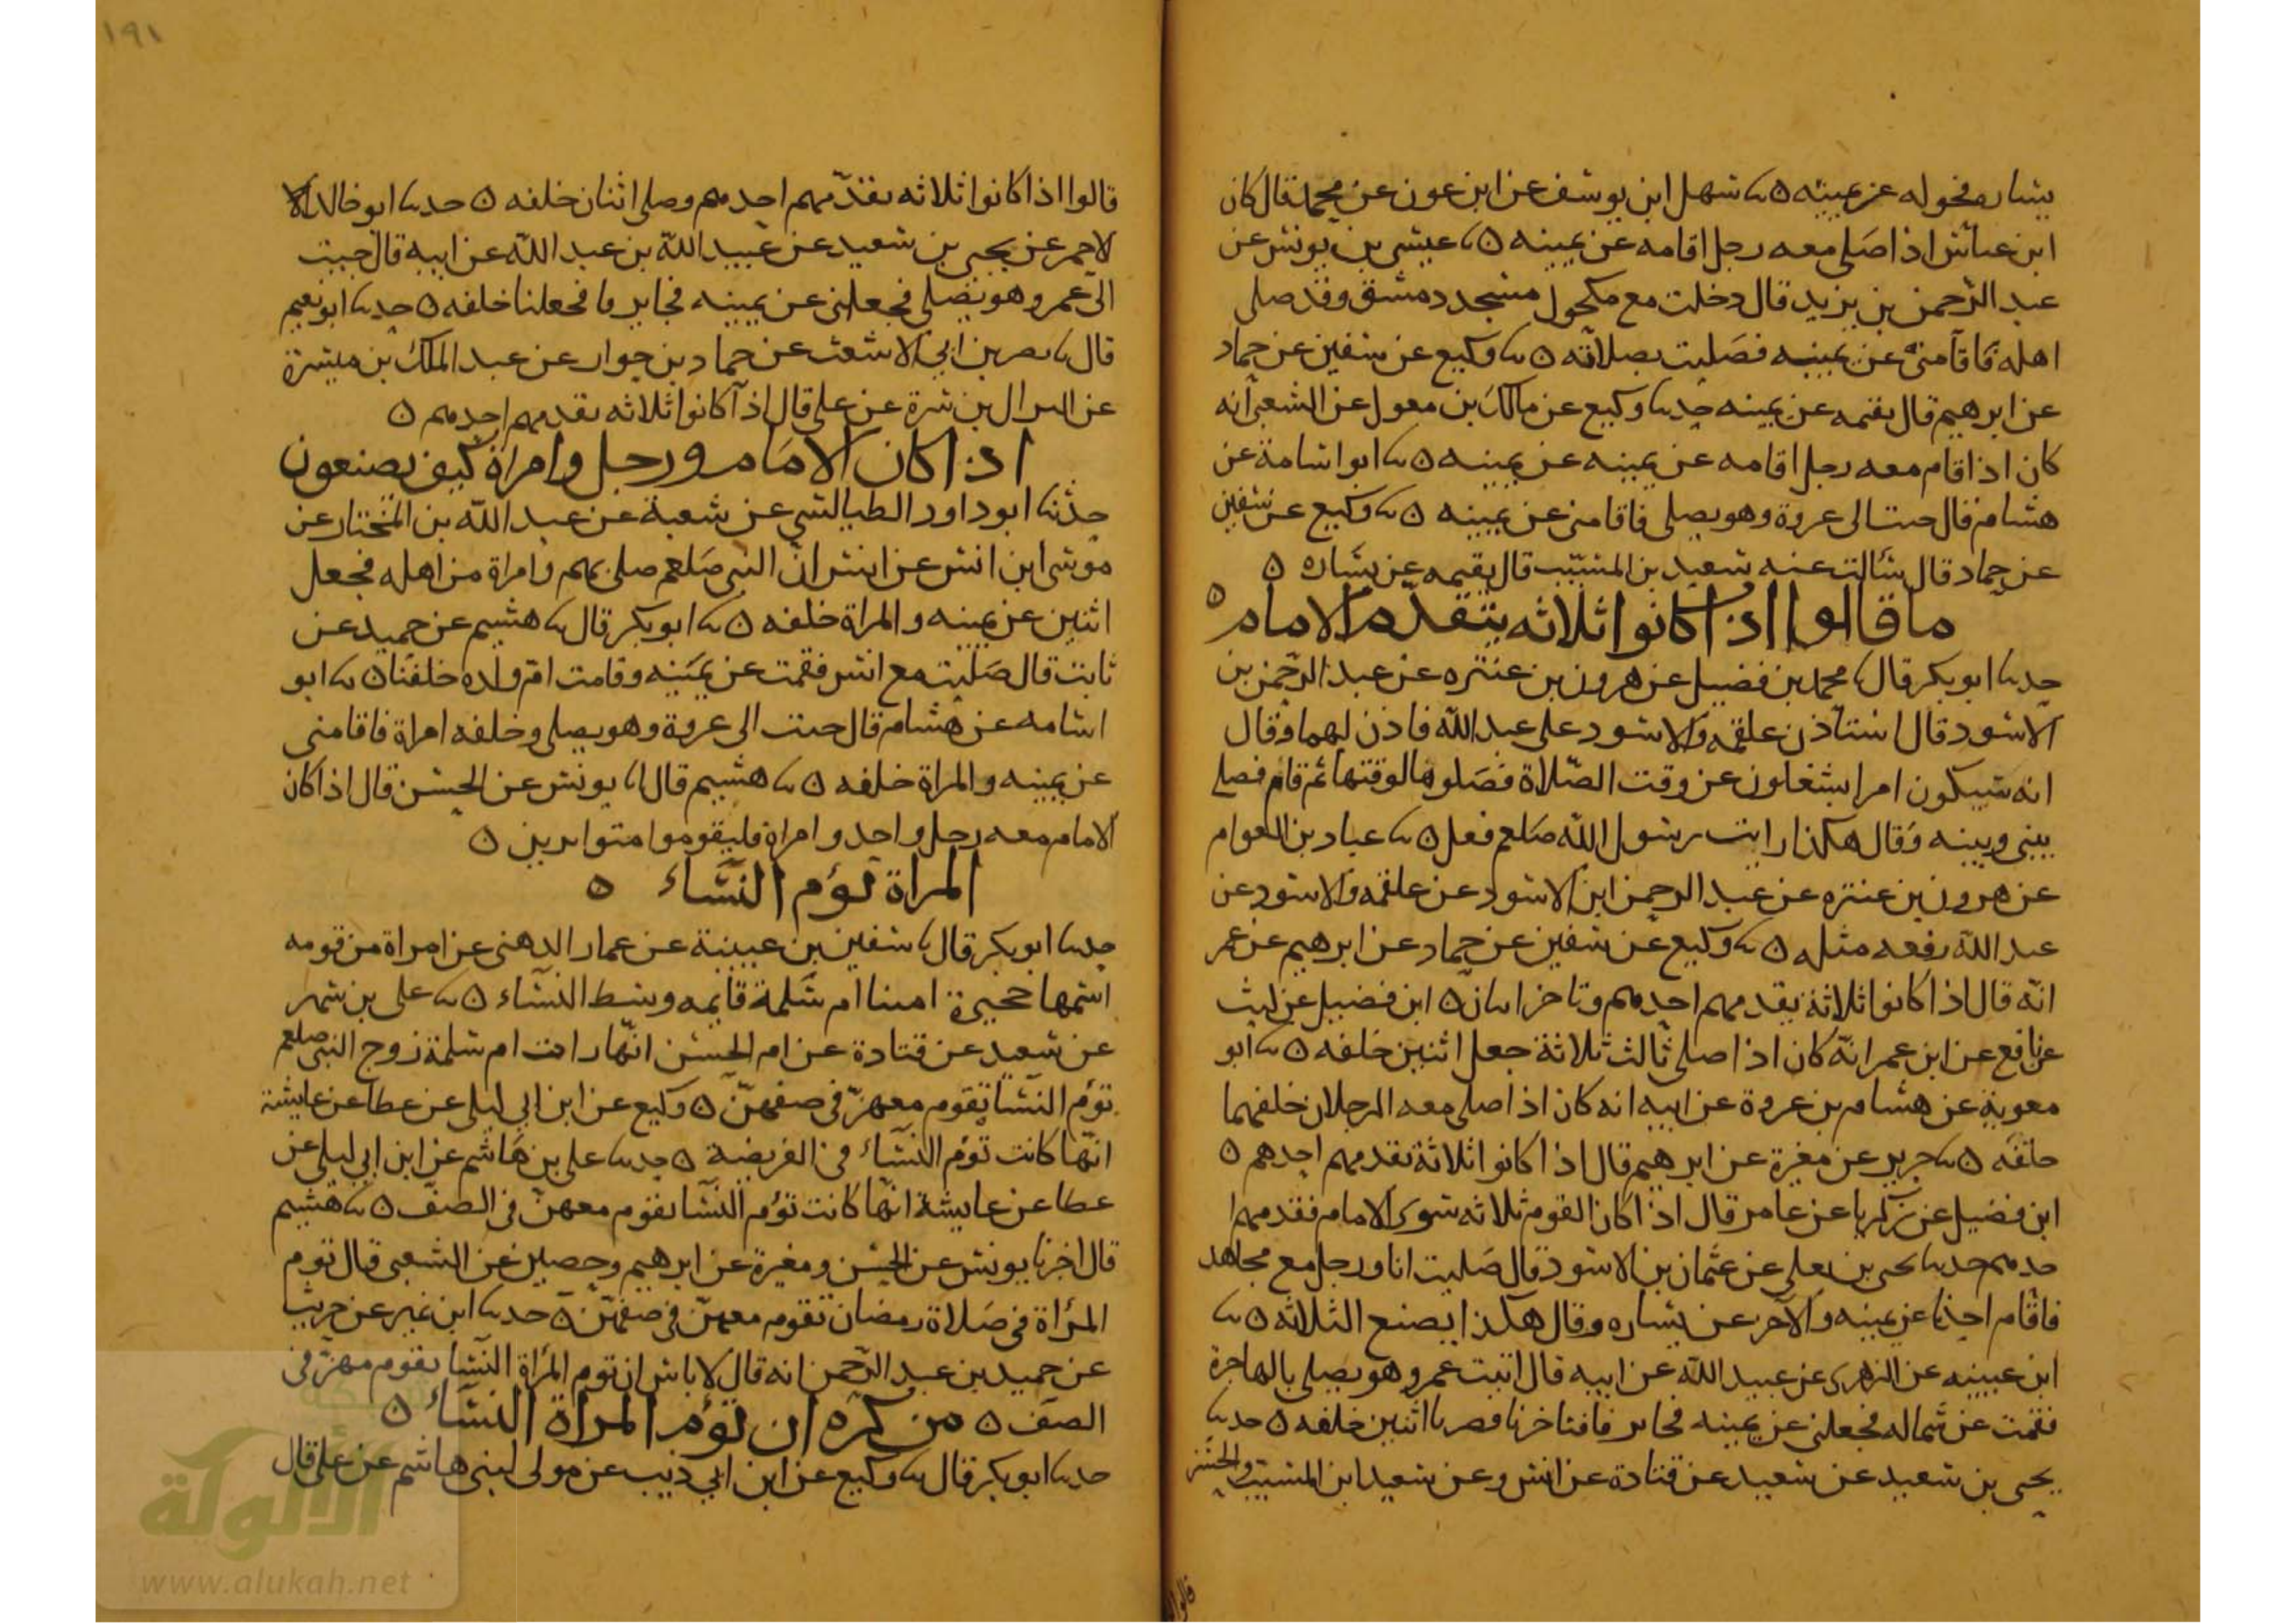 يساره فحوله عن يمينه ٥ نا سهل ابن يوسف عن ابن عون عن محمد قال كان
ابن عباس اذا صلى معه رجل اقامه عن يمينه ٥ نا عيسى بن يونس عن
عبد الرحمن بن يزيد قال دخلت مع مكحول مسجد دمشق وقد صلى
اهله فاقامنى عن يمينه فصليت بصلاته ٥ نا وكيع عن سفين عن حماد
عن ابرهيم قال يقمه عن يمينه حدنا وكيع عن مالك بن معول عن الشعبى انه
كان اذا قام معه رجل اقامه عن يمينه عن يمينه ٥ نا ابو اسامة عن
هشام قال جيت الى عروة وهو يصلى فاقامنى عن يمينه ٥ نا وكيع عن سفين
عن حماد قال سالت عنه سعيد بن المسيب قال يقيمه عن يساره ٥
ما قالوا اذا كانوا ثلاثه يتقدم الامام ٥
حدنا ابو بكر قال نا محمد بن فضيل عن هرون بن عنتره عن عبد الرحمن بن
الاسود قال استاذن علقمه والاسود على عبد الله فاذن لهما وقال
انه سيكون امرا يشغلون عن وقت الصلاة فصلوها لوقتها ثم قام فصلى
بينى وبينه وقال هكذا رايت رسول الله صلعم فعل ٥ نا عباد بن العوام
عن هرون بن عنتره عن عبد الرحمن ابن الاسود عن علقمه والاسود عن
عبد الله رفعه مثله ٥ نا وكيع عن سفين عن حماد عن ابرهيم عن عمر
انه قال اذا كانوا ثلاثة يقدمهم احدهم وتاخر اثنان ٥ ابن فضيل عن ليث
عن نافع عن ابن عمر انه كان اذا صلى ثالث ثلاثة جعل اثنين خلفه ٥ نا ابو
معوية عن هشام بن عروة عن ابيه انه كان اذا صلى معه الرجلان خلفهما
خلفه ٥ نا جرير عن مغيرة عن ابرهيم قال اذا كانوا ثلاثة تقدمهم احدهم ٥
ابن فضيل عن زكريا عن عامر قال اذا كان القوم ثلاثه سوى الامام فقدمهم ا
حدهم حدنا يحى بن يعلى عن عثمان بن الاسود قال صليت انا ورجل مع مجاهد
فاقام احدنا عن يمينه والاخر عن يساره وقال هكذا يصنع الثلاثه ٥ نا
ابن عيينه عن الزهرى عن عبيد الله عن ابيه قال اتيت عمر وهو يصلى بالهاجرة
فقمت عن شماله فجعلنى عن يمينه فجا يرفا فتاخرنا فصرنا اثنين خلفه ٥ حدنا
يحيى بن سعيد عن سعيد عن قتادة عن انس وعن سعيد ابن المسيب والحسن
١٩١
قالوا اذا كانوا ثلاثه يقدمهم احدهم وصلى اثنان خلفه ٥ حدنا ابو خالد الا
لاحمر عن يحيى بن سعيد عن عبيد الله بن عبد الله عن ابيه قال جيت
الى عمر وهو يصلى فجعلنى عن يمينه فجا يرفا فجعلنا خلفه ٥ حدنا ابو نعيم
قال نا نصر بن ابي الاشعث عن حماد بن جوار عن عبد الملك بن ميسرة
عن النزال بن سبرة عن على قال اذا كانوا ثلاثه يقدمهم احدهم ٥
اذا كان الامام ورجل وامراة كيف يصنعون
حدثنا ابو داود الطيالسي عن شعبة عن عبد الله بن المختار عن
موسى ابن انس عن انس ان النبى صلعم صلى بهم وامراة من اهله فجعل
اثنين عن يمينه والمراة خلفه ٥ نا ابو بكر قال نا هشيم عن حميد عن
ثابت قال صليت مع انس فقمت عن يمينه وقامت ام ولده خلفنا ٥ نا ابو
اسامه عن هشام قال جيت الى عروة وهو يصلى وخلفه امراة فاقامنى
عن يمينه والمراة خلفه ٥ نا هشيم قال انا يونس عن الحسن قال اذا كان
الامام معه رجل واحد وامراة فليقوموا متواترين ٥
المراة تؤم النساء ٥
حدنا ابو بكر قال نا سفين بن عيينة عن عمار الدهنى عن امراة من قومه
اسمها حجيرة امتنا ام سلمة قايمه وسط النساء ٥ نا على بن مسهر
عن سعيد عن قتادة عن ام الحسن انها رات ام سلمة زوج النبى صلعم
تؤم النسا تقوم معهن فى صفهن ٥ وكيع عن ابن ابي ليلى عن عطا عن عايشة
انها كانت تؤم النساء فى الفريضة ٥ حدنا على بن هاشم عن ابن ابي ليلى عن
عطا عن عايشة انها كانت تؤم النسا تقوم معهن فى الصف ٥ نا هشيم
قال اخبرنا يونس عن الحسن ومغيرة عن ابرهيم وحصين عن الشعبى قال توم
المرأة فى صلاة رمضان تقوم معهن فى صفهن ٥ حدنا ابن نمير عن حريث
عن حميد بن عبد الرحمن انه قال لا باس ان توم المرأة النسا تقوم معهن فى
الصف ٥ من كره ان تؤم المراة النساء ٥
حدنا ابو بكر قال نا وكيع عن ابن ابي ذيب عن مولى لبنى هاشم عن على قال
الألوكة
www.alukah.net